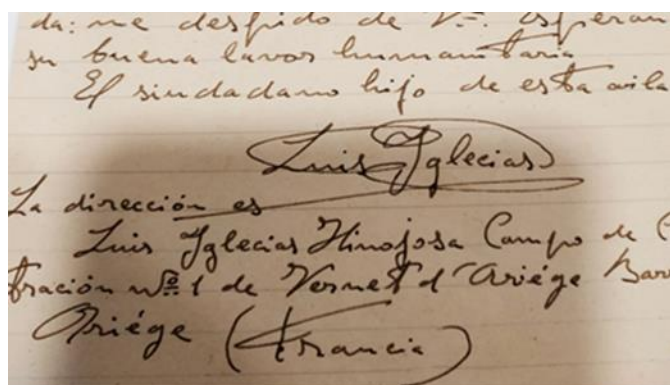 da: me despido de Vd. esperan
su buena lavor humanitaria
El sindadano hijo de esta vila
Luis Yglecias
La dirección es
Luis Yglecias Hinojosa Campo de C
tración nº 1 de Vernet d'Ariége Barr
Ariége (Francia)